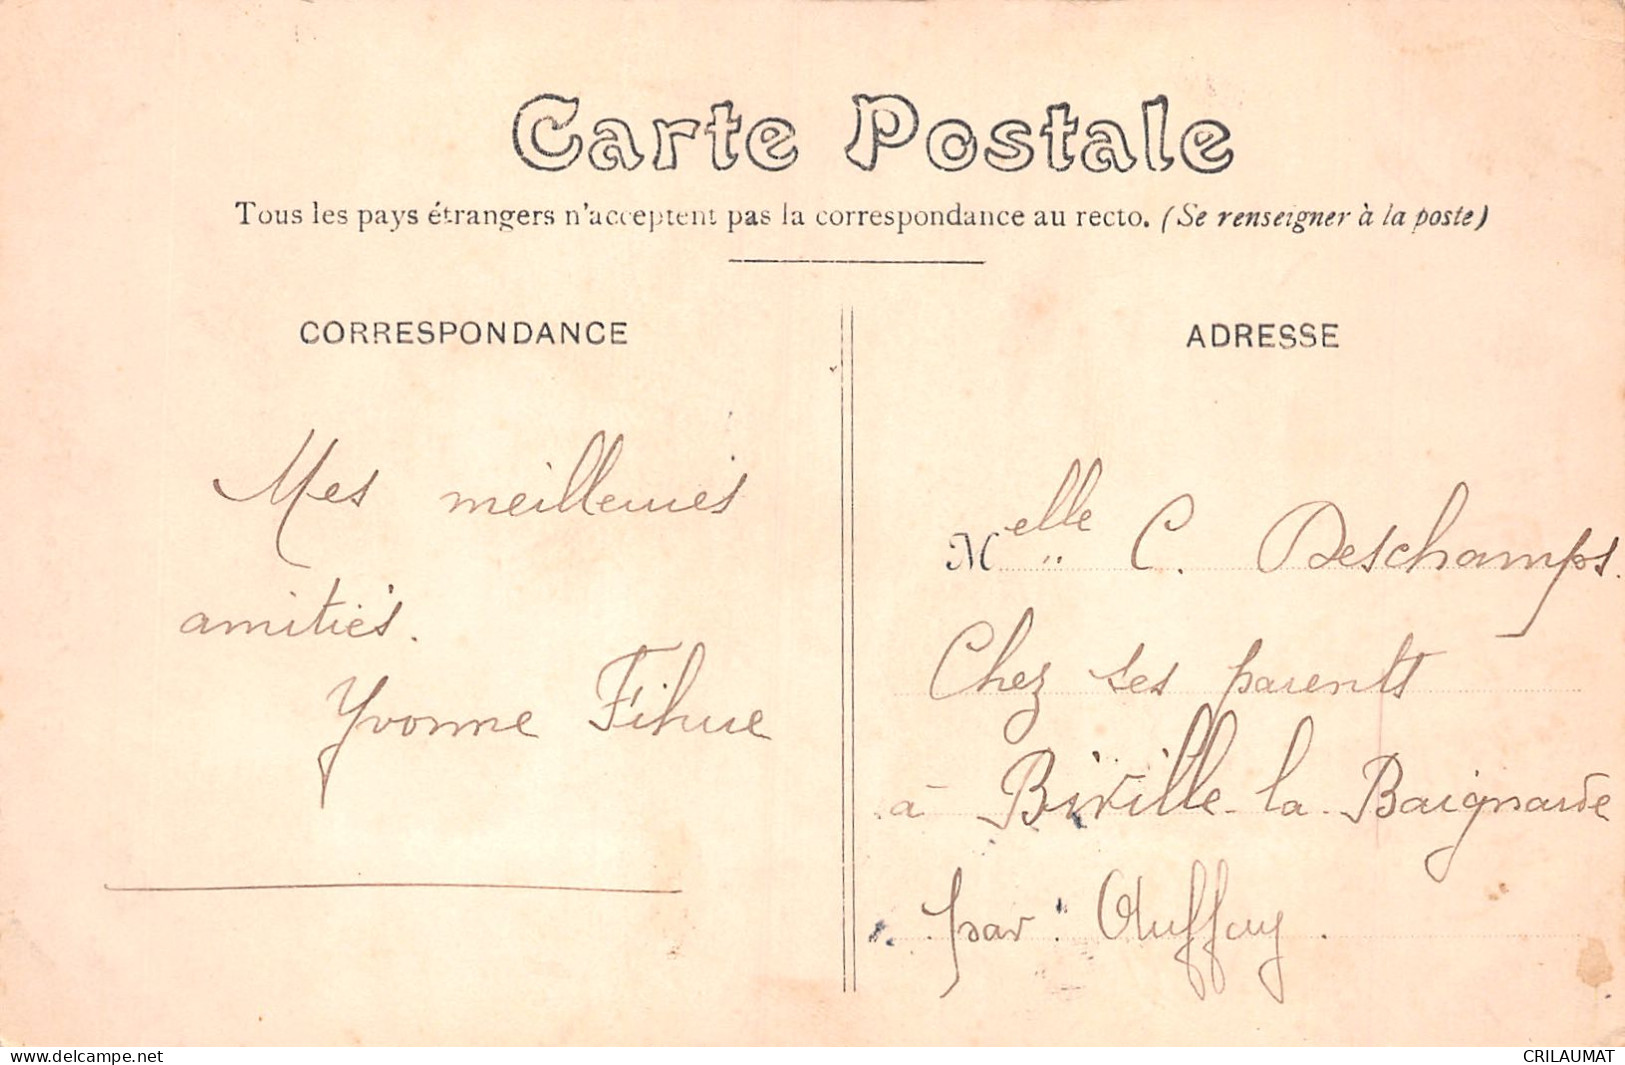 Carte Postale
Tous les pays étrangers n'acceptent pas la correspondance au recto. (Se renseigner à la poste)
CORRESPONDANCE
Mes meilleures
amitiés.
Yvonne
ADRESSE
Melle C. Deschamps.
Chez ses parents
à Biville-la-Baignarde
par: Auffay.
www.delcampe.net
CRILAUMAT